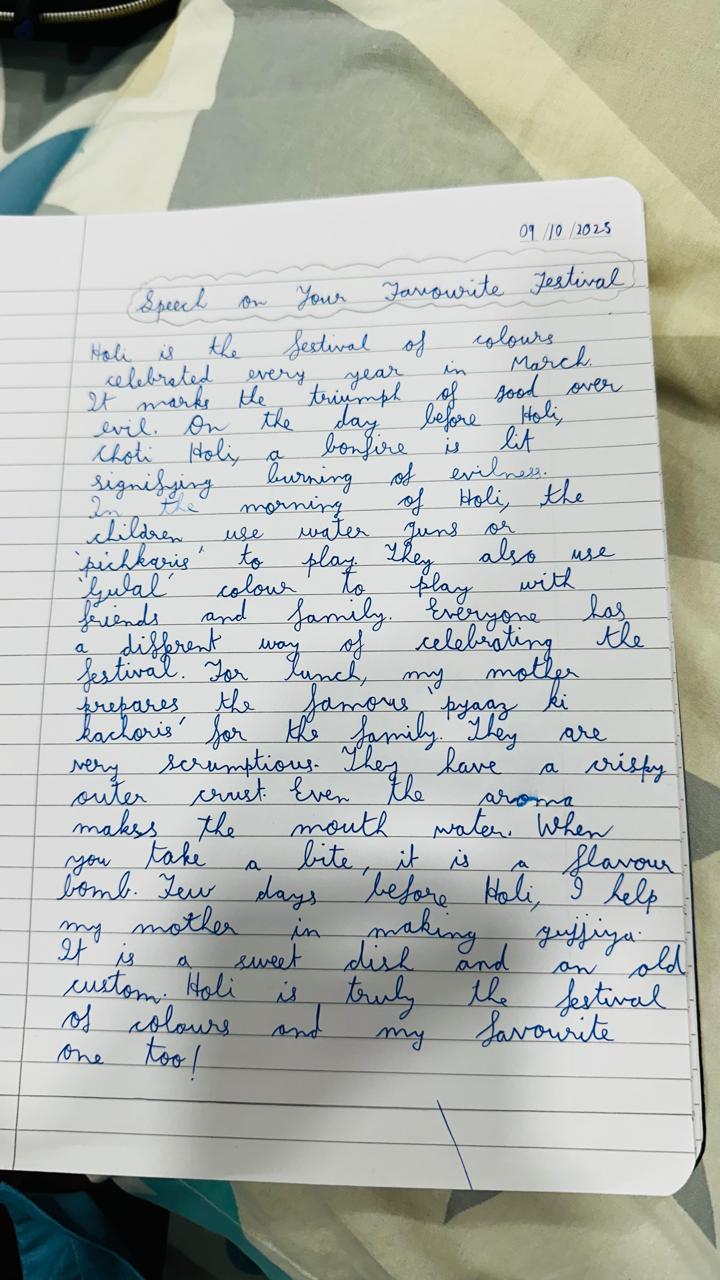 09/10/2025
Speech on Your Favourite Festival
Holi is the festival of colours
celebrated every year in March.
It marks the triumph of good over
evil. On the day before Holi,
Choti Holi, a bonfire is lit
signifying burning of evilness.
In the morning of Holi, the
children use water guns or
'pichkaris' to play. They also use
'Gulal' colour to play with
friends and family. Everyone has
a different way of celebrating the
festival. For lunch, my mother
prepares the famous 'pyaaz ki
kachoris' for the family. They are
very scrumptious. They have a crispy
outer crust. Even the aroma
makes the mouth water. When
you take a bite, it is a flavour
bomb. Few days before Holi, I help
my mother in making gujjiya.
It is a sweet dish and an old
custom. Holi is truly the festival
of colours and my favourite
one too!